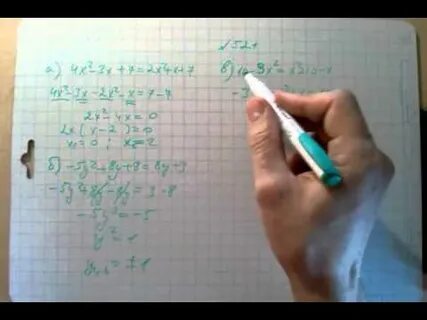 №521
а) 4x²-3x+7=2x²+x+7
4x²-3x-2x²-x=7-7
2x²-4x=0
2x(x-2)=0
x=0; x=2
б) -5y²+8y+8=8y+3
-5y²+8y-8y=3-8
-5y²=-5
y²=1
y₁,₂=±1
в)